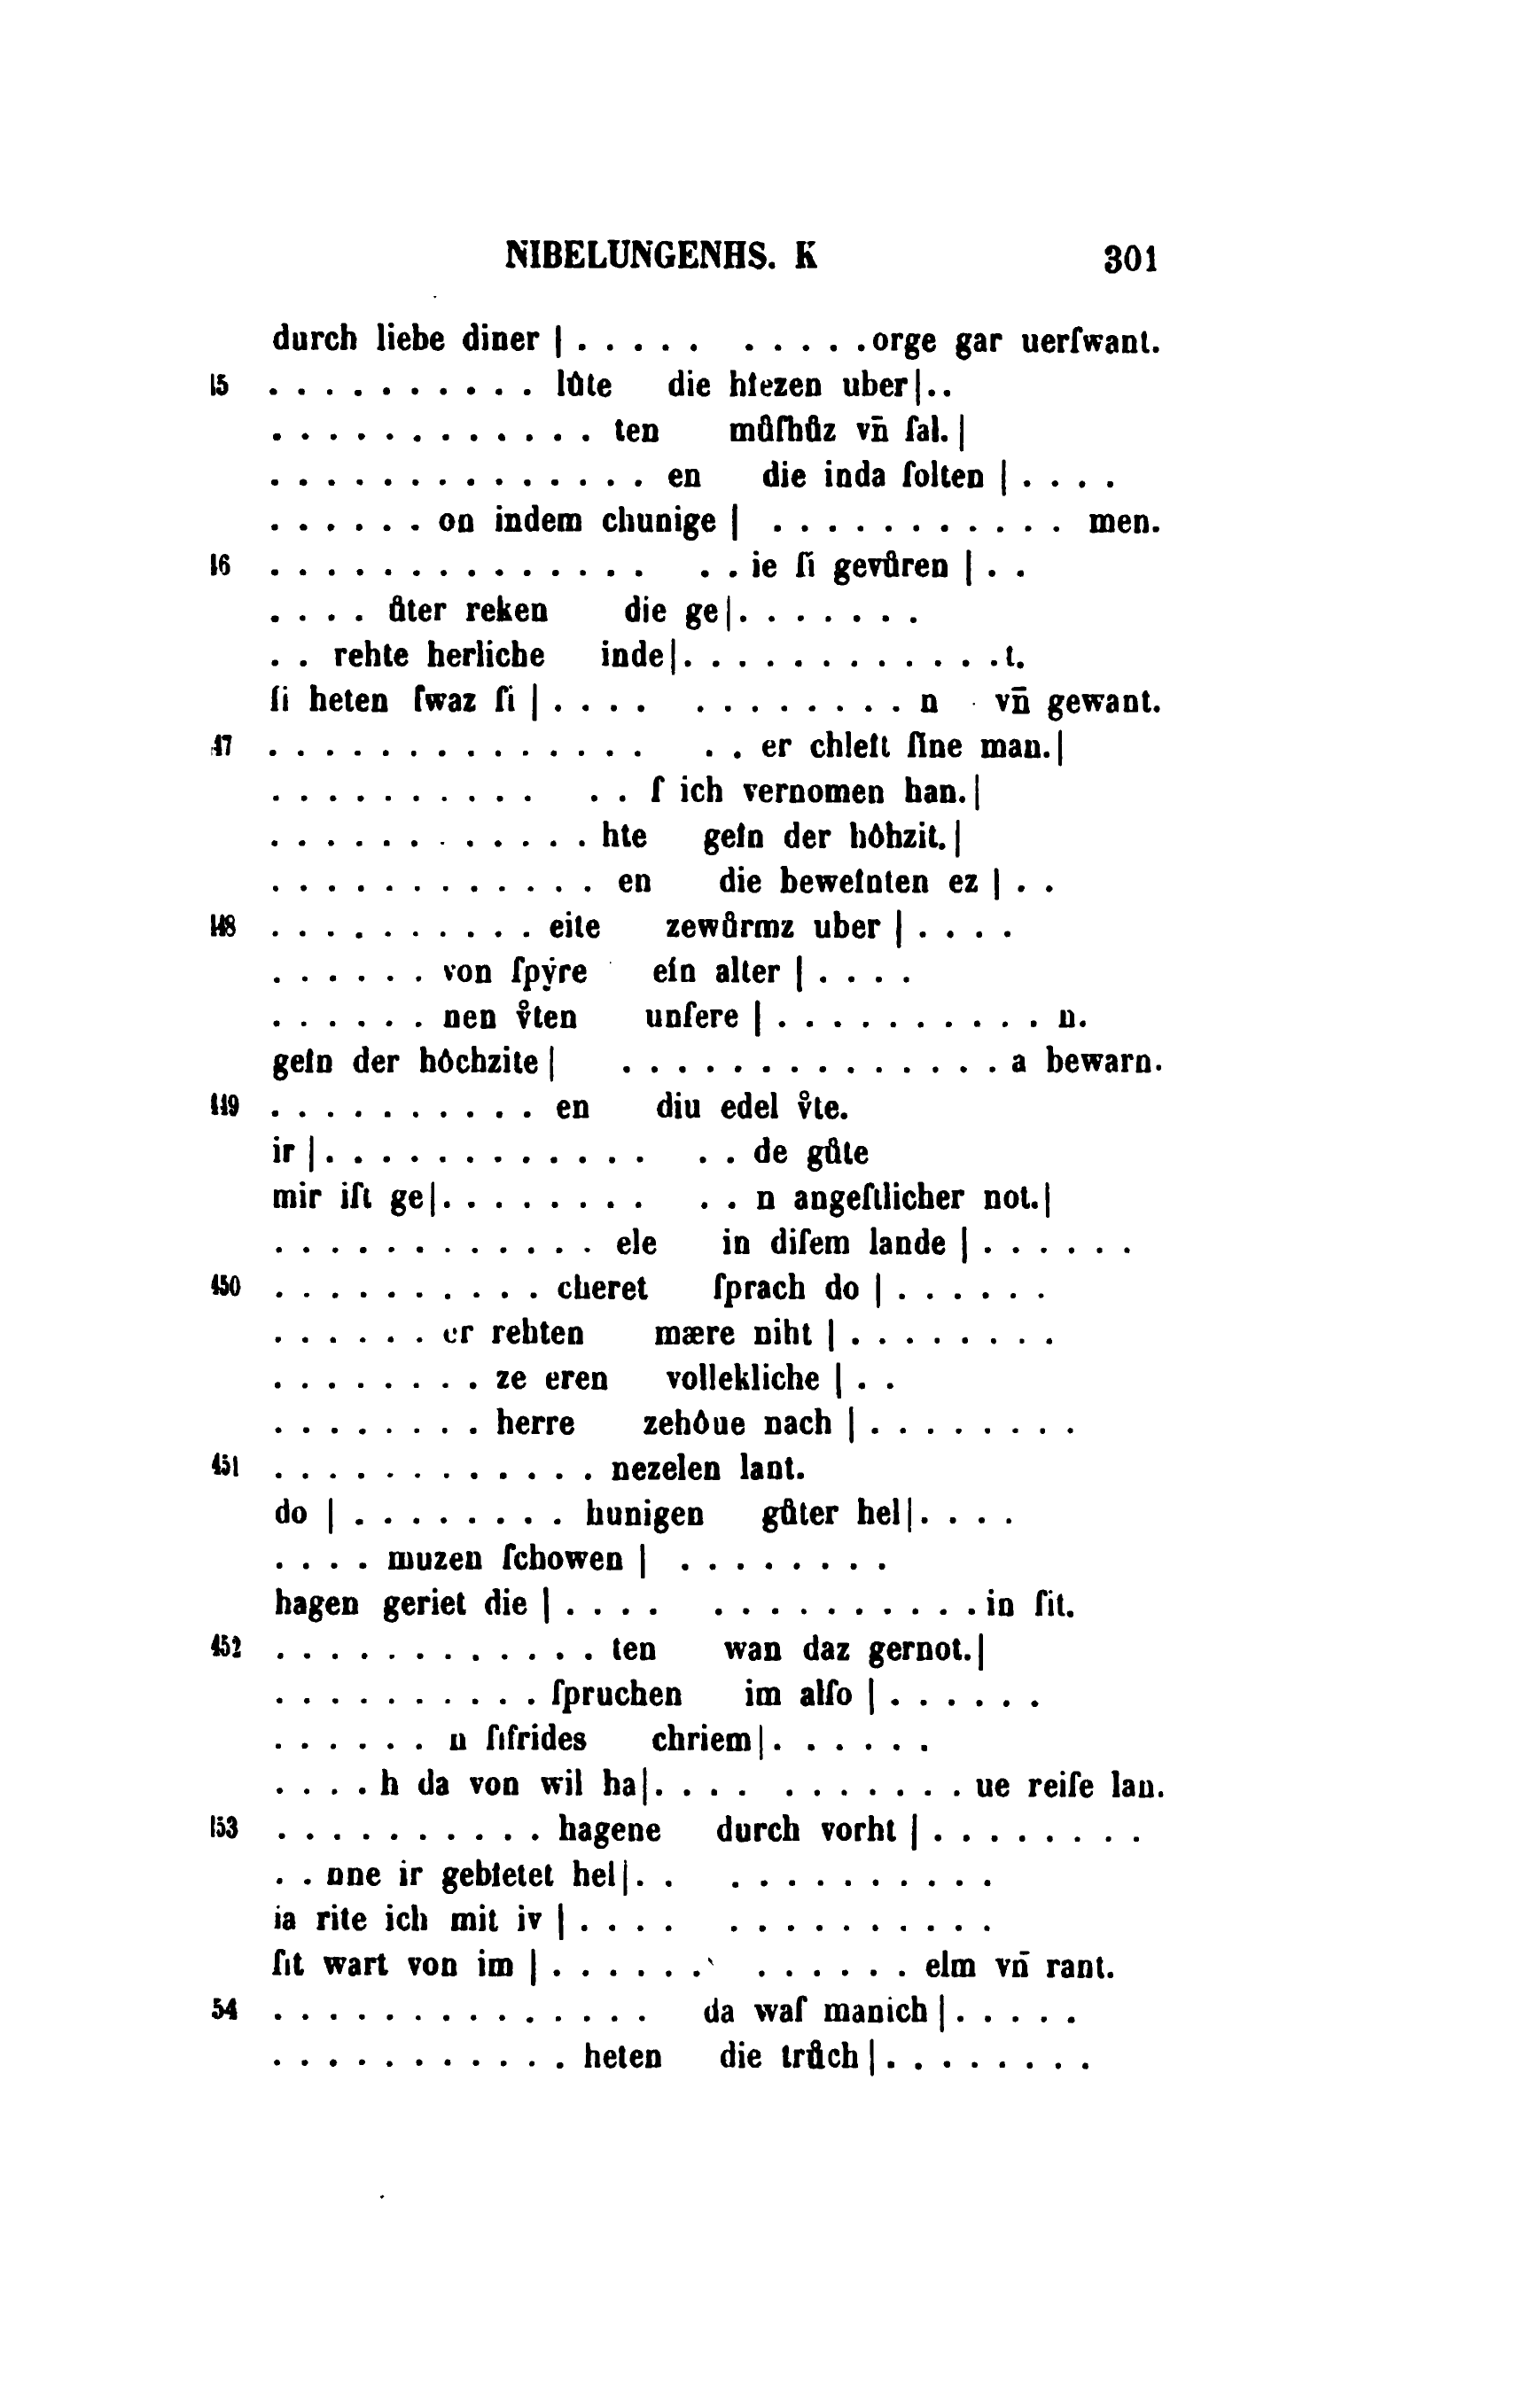 NIBELUNGENHS. K 301
durch liebe diner | . . . . . . . . . . orge gar uerſwant.
15 . . . . . . . . . . lůte die hiezen uber|..
. . . . . . . . . . . . ten můſhůz vn̄ ſal.|
. . . . . . . . . . . . . . en die inda ſolten | . . . .
. . . . . . on indem chunige | . . . . . . . . . . . men.
16 . . . . . . . . . . . . . . . . ie ſi gevůren | . .
. . . . ůter reken die ge|. . . . . . .
. . rehte herliche inde|. . . . . . . . . . . . t.
ſi heten ſwaz ſi | . . . . . . . . . . . . n vn̄ gewant.
47 . . . . . . . . . . . . . . . . er chleit ſine man.|
. . . . . . . . . . . . ſ ich vernomen han.|
. . . . . . . . . . . . hte gein der hôhzit.|
. . . . . . . . . . . . en die beweinten ez | . .
148 . . . . . . . . . . eite zewůrmz uber | . . . .
. . . . . . von ſpẏre ein alter | . . . .
. . . . . . nen v̊ten unſere | . . . . . . . . . . n.
gein der hôchzite| . . . . . . . . . . . . . . a bewarn.
449 . . . . . . . . . . en diu edel v̊te.
ir |. . . . . . . . . . . . . . de gůte
mir iſt ge|. . . . . . . . . . n angeſtlicher not.|
. . . . . . . . . . . . ele in diſem lande | . . . . . .
450 . . . . . . . . . . cheret ſprach do | . . . . . .
. . . . . . er rehten mære niht | . . . . . . . .
. . . . . . . . ze eren vollekliche | . .
. . . . . . . . herre zehôue nach | . . . . . . . .
451 . . . . . . . . . . . . nezelen lant.
do | . . . . . . . . hunigen gůter hel|. . . .
. . . . muzen ſchowen | . . . . . . . .
hagen geriet die | . . . . . . . . . . . . . . in ſit.
452 . . . . . . . . . . . . ten wan daz gernot.|
. . . . . . . . . . ſpruchen im alſo | . . . . . .
. . . . . . n ſifrides chriem|. . . . . .
. . . . h da von wil ha|. . . . . . . . . . . ue reiſe lan.
153 . . . . . . . . . . hagene durch vorht | . . . . . . . .
. . nne ir gebietet hel|. . . . . . . . . . . .
ia rite ich mit iv | . . . . . . . . . . . . . .
ſit wart von im | . . . . . . . . . . . . elm vn̄ rant.
54 . . . . . . . . . . . . . . da waſ manich | . . . . .
. . . . . . . . . . . heten die trůch|. . . . . . . .